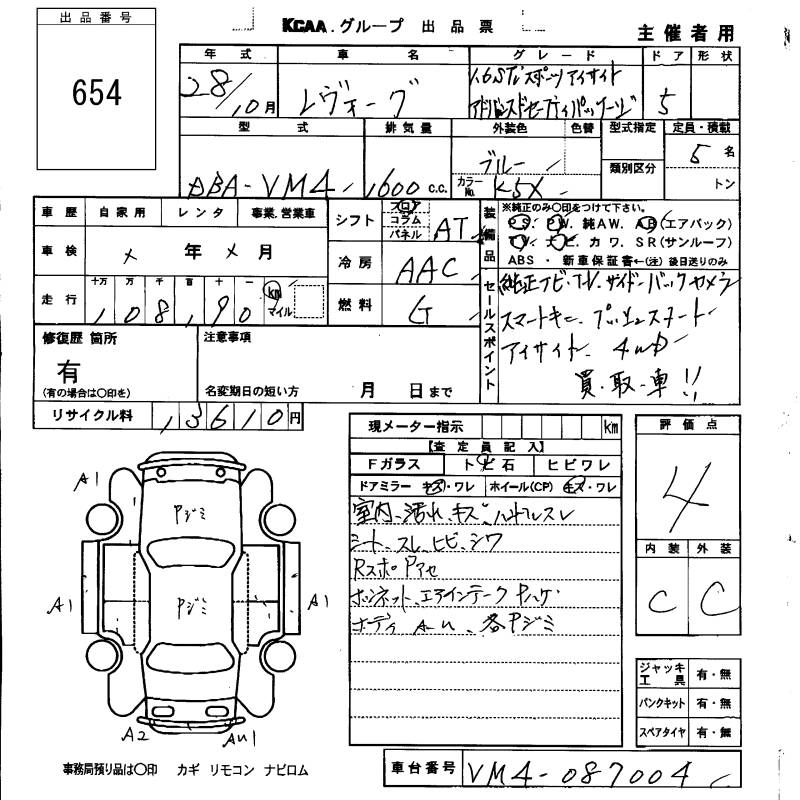 出品番号
654
KCAA.グループ 出品票
主催者用
年式 車名 グレード ドア 形状
28/10月 レヴォーグ 1.6STiスポーツアイサイト
アドバンスドセーフティパッケージ 5
型式 排気量 外装色 色替 型式指定 定員・積載
DBA-VM4 1600 C.C. ブルー 5名
カラーNo. K5X 類別区分 トン
車歴 自家用 レンタ 事業.営業車
シフト フロア コラム パネル AT
装備品 ※純正のみ〇印をつけて下さい。
PS. PW. 純AW. AB(エアバック)
TV. ナビ. カワ. SR(サンルーフ)
ABS・新車保証書←(注)後日送りのみ
車検 メ年メ月
冷房 AAC
走行 十万 万 千 百 十 一
108,190 km マイル
燃料 G
セールスポイント
純正ナビ・TV.サイド・バックカメラ
スマートキー.プッシュスタート
アイサイト. 4WD
買・取・車!!
修復歴 箇所 注意事項
有
(有の場合は〇印を) 名変期日の短い方 月 日まで
リサイクル料 13610円
現メーター指示 km
【査定員記入】
Fガラス トビ石 ヒビワレ
ドアミラー キズ・ワレ ホイール(CP) キズ・ワレ
室内、汚れ、キズ、ハンドルスレ
シート、スレ、ヒビ、シワ
RスポPアセ
ボンネット、エアインテークPハゲ
ボディ AU、各Pジミ
評価点
4
内装 外装
C C
A1
Pジミ
A1
Pジミ
A1
A2
AU1
ジャッキ工具 有・無
パンクキット 有・無
スペアタイヤ 有・無
事務局預り品は〇印 カギ リモコン ナビロム
車台番号 VM4-087004